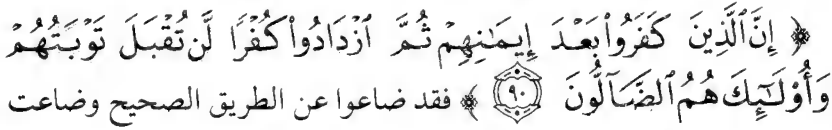 ﴿ إِنَّ ٱلَّذِينَ كَفَرُوا۟ بَعْدَ إِيمَـٰنِهِمْ ثُمَّ ٱزْدَادُوا۟ كُفْرًا لَّن تُقْبَلَ تَوْبَتُهُمْ
وَأُو۟لَـٰٓئِكَ هُمُ ٱلضَّآلُّونَ ٩٠ ﴾ فقد ضاعوا عن الطريق الصحيح وضاعت